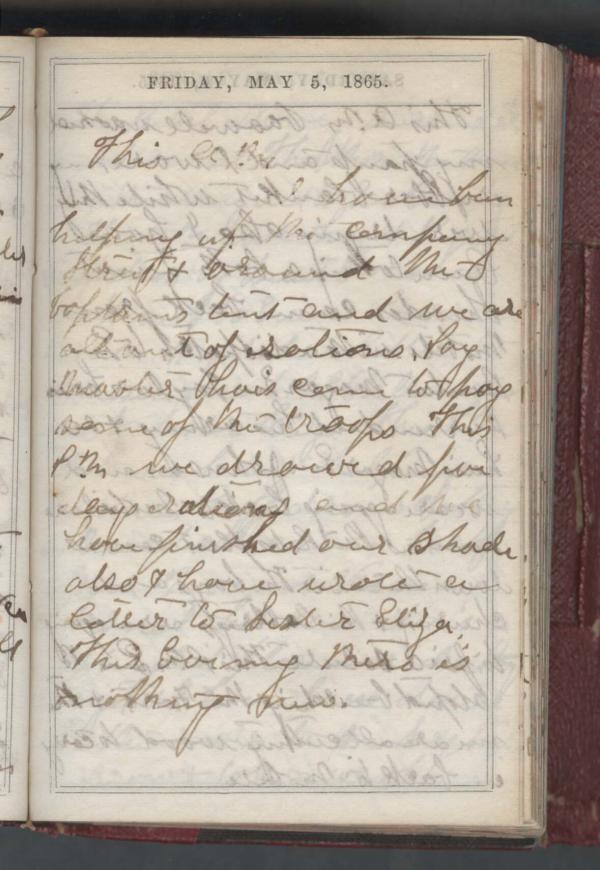 FRIDAY, MAY 5, 1865.
This A.M.
I have bun
helping up the company
Streets around the
Captains tent and we are
all out of rations. Pay
master has come to pay
some of the troops This
P.M we drawed five
days rations and we
have finished our shade
also I have wrote a
letter to Sister Eliza.
This Evening there is
nothing new.